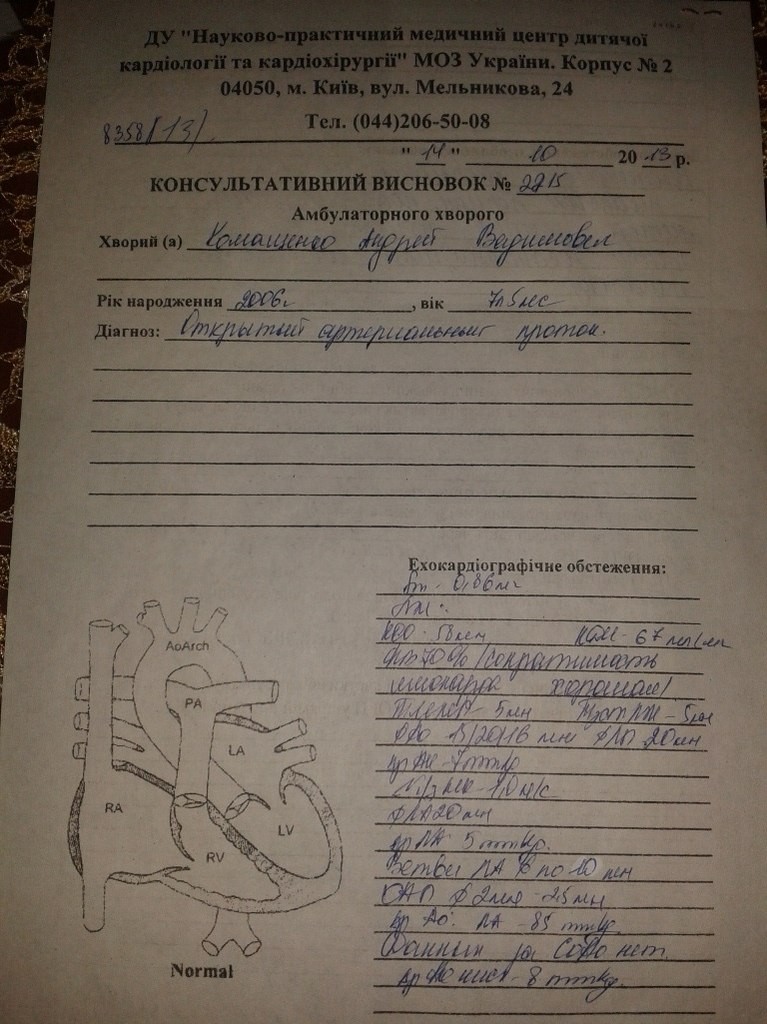 ДУ "Науково-практичний медичний центр дитячої
кардіології та кардіохірургії" МОЗ України. Корпус № 2
04050, м. Київ, вул. Мельникова, 24
Тел. (044)206-50-08
8358(13)
" 14 " 10 20 13 р.
КОНСУЛЬТАТИВНИЙ ВИСНОВОК № 2215
Амбулаторного хворого
Хворий (а) Комащенко Андрей Вадимович
Рік народження 2006г , вік 7л 5мес
Діагноз: Открытый артериальный проток.
Ехокардіографічне обстеження:
0,86м²
КДО - 58мл
67 мл/
ФВ 70% /сократимость
миокарда хорошая/
5мм 5мм
20/16 мм 20мм
7mmHg
1,0 м/с
ФЛА 20мм
5 mmHg.
Ветви ЛА по 10 мм
ОАП ф 2мм - 2,5мм
гр Ао: ЛА - 85 mmHg.
Данных за нет.
8 mmHg.
AoArch
PA
LA
RA
LV
RV
Normal